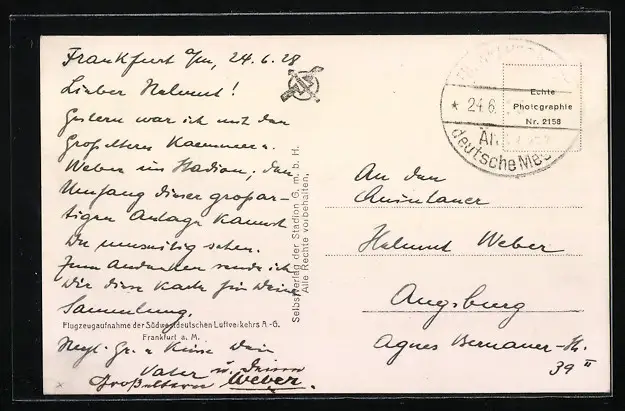 Frankfurt a/m, 24.6.28
Lieber Helmut!
Gestern war ich mit den
Großeltern Kaemmerer u.
Weber im Stadion, den
Umfang dieser großar-
tigen Anlage kannst
Du umseitig sehen.
Zum Andenken sende ich
Dir diese Karte für Deine
Sammlung.
Flugzeugaufnahme der Südwestdeutschen Luftverkehrs A.-G.
Frankfurt a. M.
Herzl. Gr. u. Küsse Dein
Vater u. Deine
Großeltern Weber.
Selbstverlag der Stadion G. m. b. H.
Alle Rechte vorbehalten.
Echte
Photographie
Nr. 2158
* 24.6.
deutsche Mei
An den
Quintaner
Helmut Weber
Augsburg
Agnes Bernauer-Str.
39 II